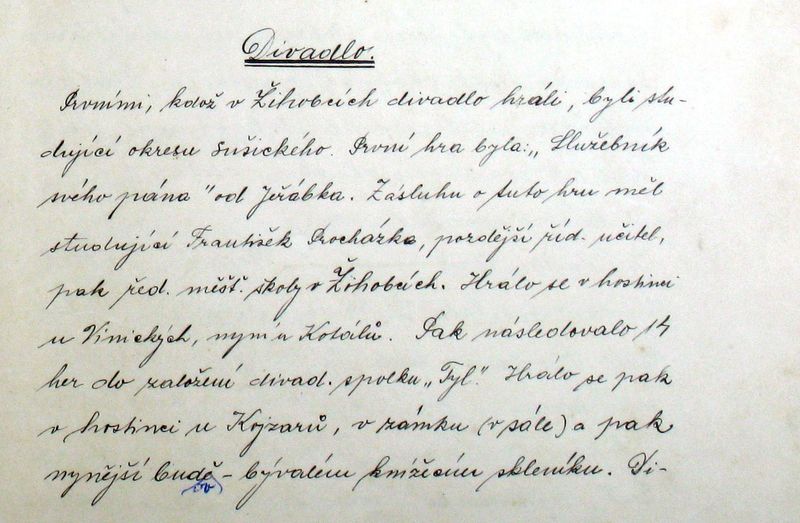 Divadlo.
Prvními, kdož v Žihobcích divadlo hráli, byli stu-
dující okresu sušického. První hra byla: „Služebník
svého pána" od Jeřábka. Zásluhu o tuto hru měl
studující František Procházka, pozdější říd. učitel,
pak řed. měšť. školy v Žihobcích. Hrálo se v hostinci
u Vinických, nyní u Kotálů. Pak následovalo 14
her do založení divad. spolku „Tyl". Hrálo se pak
v hostinci u Kojzarů, v zámku (v sále) a pak
nynější budě - bývalém knížecím skleníku. Di-